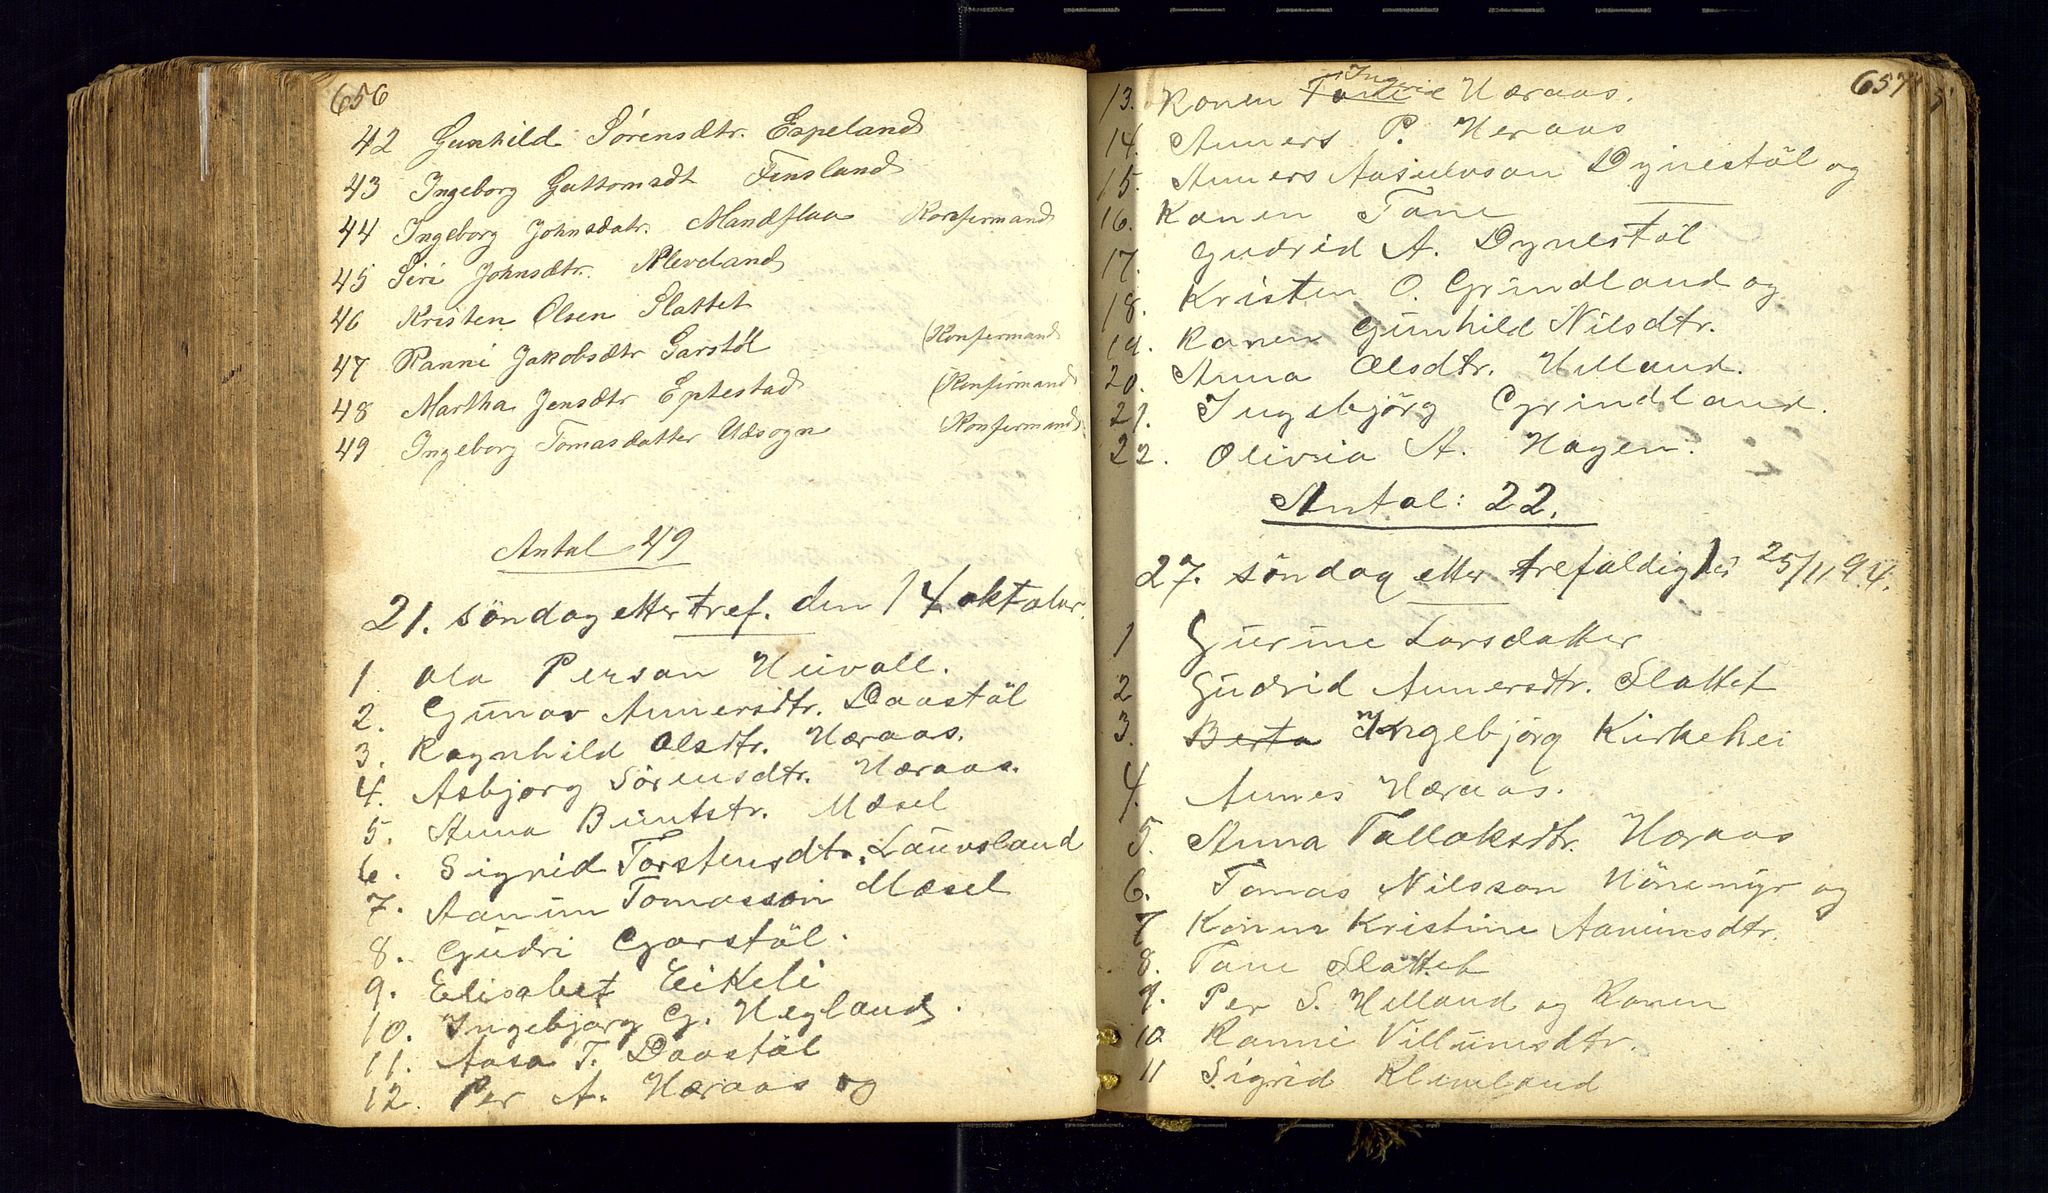 656
42 Gunhild Sörensdtr. Espeland
43 Ingeborg Guttomsdt Finsland
44 Ingeborg Johnsdatr. Mandflaa Konfirmand
45 Siri Johnsdtr. Kleveland
46 Kristen Olsen Slattet
47 Ranni Jakobsdtr Garstöl (Konfirmand
48 Martha Jensdtr Eptestad (Konfirmand
49 Ingeborg Tomasdatter Udsogn (Konfirmand
Antal 49
21. söndag etter tref. den 14 oktober
1 Ola Person Heivoll.
2. Gunor Annersdtr. Daastöl
3. Ragnhild Olsdtr. Hæraas.
4. Asbjørg Sörensdtr. Hæraas.
5. Anna Buntstr. Mæsel
6. Sigrid Torstensdtr. Lauvsland
7. Aanun Tomasson Mæsel
8. Gudri Garstöl.
9. Elisabet Eikeli
10. Ingebjørg G. Hegland.
11. Aasa T. Daastöl
12. Per A. Hæraas og
657
13. Konen Tone Ingrie Hæraas.
14. Anners P. Heraas
15. Anners Aasulvson Dynestöl og
16. Konen Tone
17. Gudrid A. Dynestöl
18. Kristen O. Grundland og
19. Konen Gunhild Nilsdtr.
20. Anna Olsdtr. Helland.
21. Ingebjörg Grindland.
22. Olivia A. Hagen.
Antal: 22.
27. söndag etter trefaldighet 25/11 94.
1 Gurine Larsdatter
2 Gudrid Annersdtr. Slattet
3. Berta Ingebjörg Kirkehei
4. Annes Hæraas.
5. Anna Talloksdtr. Hæraas
6. Tomas Nilsson Hönemyr og
7 Konen Kristine Aanunsdtr.
8. Tone Slattet
9. Per S. Helland og Konen
10 Ranni Villumsdtr.
11 Sigrid Kleveland